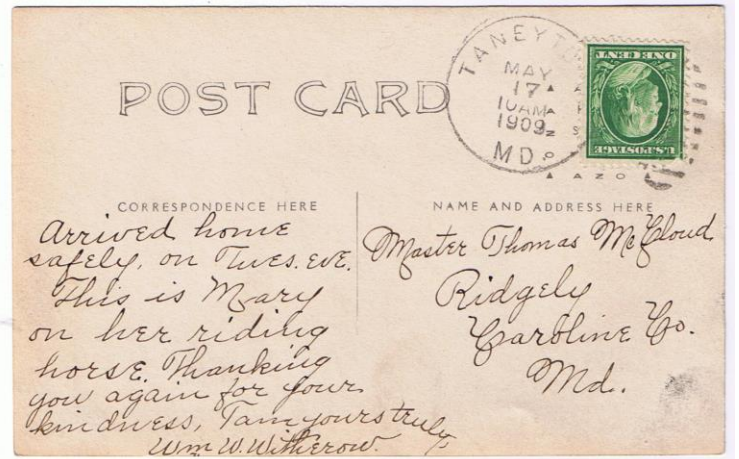 POST CARD
TANEYT
MAY
17
10AM
1909
MD.
ONE CENT
U.S.POSTAGE
AZO
CORRESPONDENCE HERE
Arrived home
safely, on Tues. eve.
This is Mary
on her riding
horse. Thanking
you again for your
kindness, I am yours truly,
Wm W. Witherow.
NAME AND ADDRESS HERE
Master Thomas McCloud
Ridgely
Caroline Co.
Md.